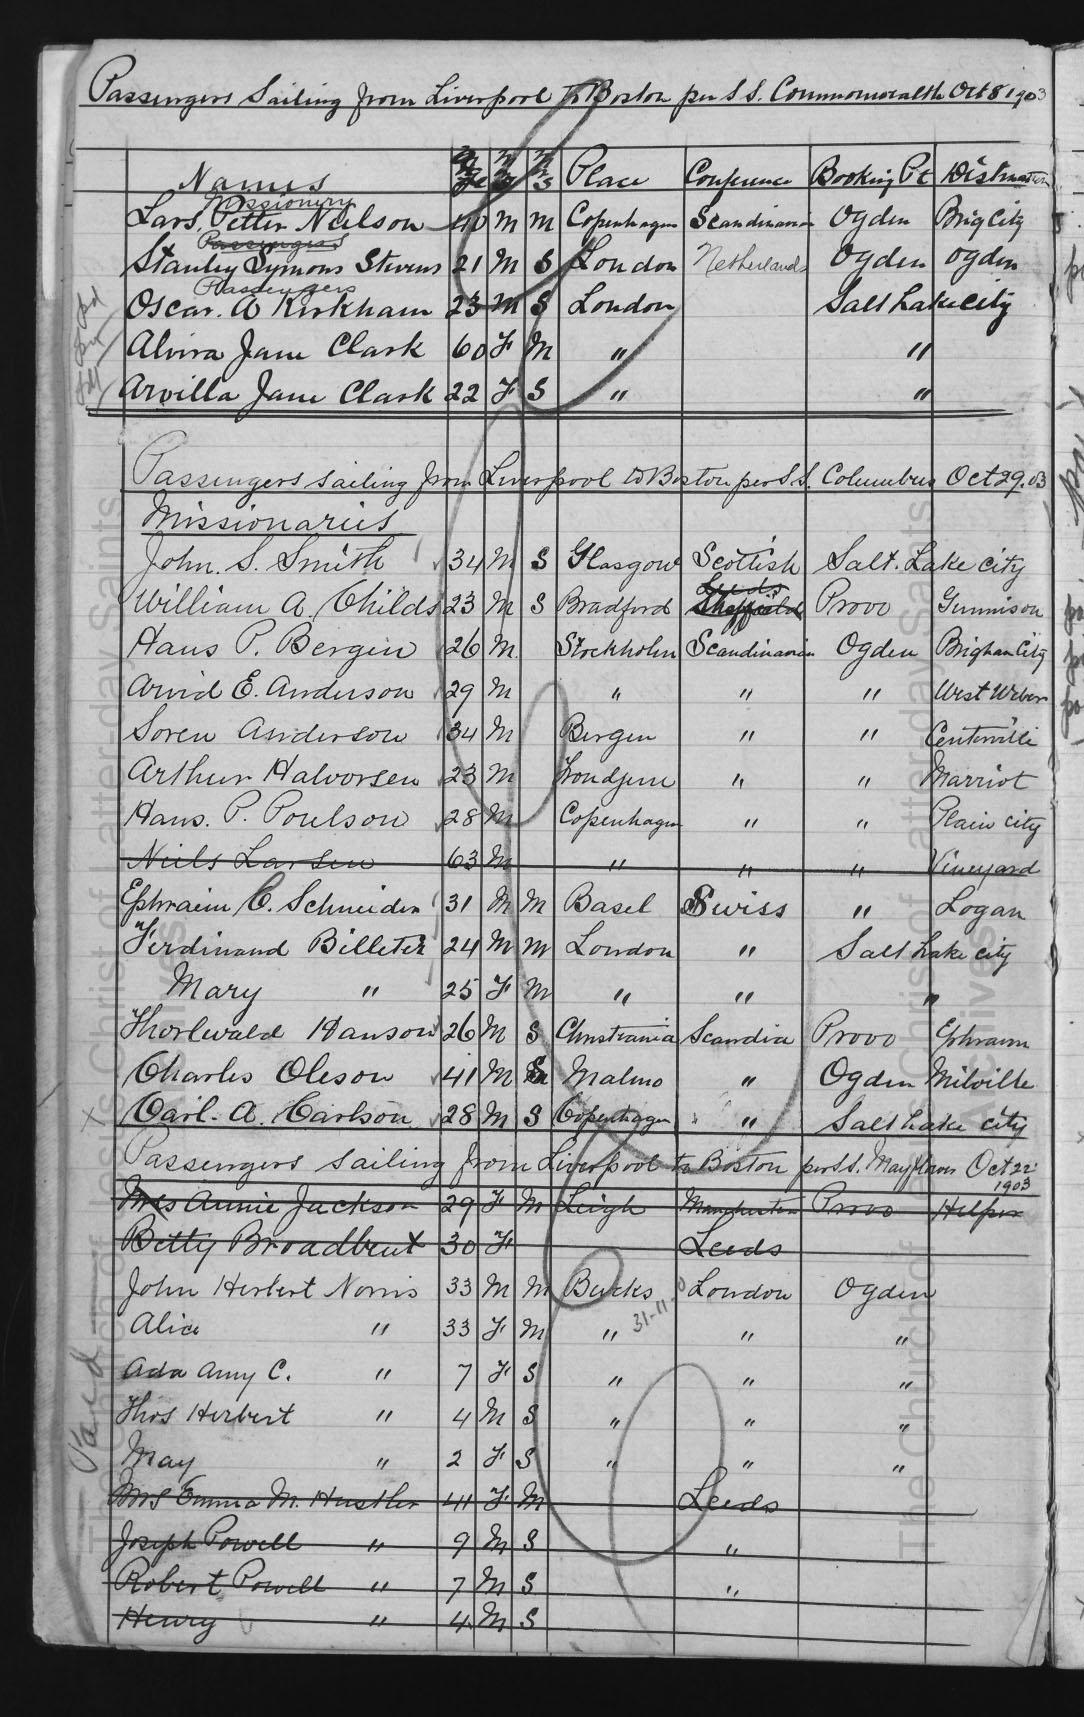 Passengers Sailing from Liverpool to Boston per S S. Commonwealth Oct 8 1903
Names Age M F M S Place Conference Booking Pt Destination
Missionery
Lars, Petter Neilson 40 M M Copenhagen Scandinavian Ogden Brig City
Passengers
Stanley Symons Stevens 21 M S London Netherlands Ogden Ogden
Passengers
Oscar. A Kirkham 23 M S London Salt Lake City
Alvira Jane Clark 60 F M " "
Arvilla Jane Clark 22 F S " "
Passengers sailing from Liverpool to Boston per S S. Columbus Oct 29. 03
Missionaries
John. S. Smith 34 M S Glasgow Scottish Salt. Lake city
Leeds
William A. Childs 23 M S Bradford Sheffield Provo Gunnison
Hans P. Bergin 26 M Stockholm Scandinavian Ogden Brigham City
Arvid E. Anderson 29 M " " " West Weber
Soren Anderson 34 M Bergen " " Centerville
Arthur Halvorsen 23 M Trondjem " " Marriot
Hans. P. Poulson 28 M Copenhagen " " Plain city
Niels Larsen 63 M " " " Vineyard
Ephraim C. Schneider 31 M M Basel Swiss " Logan
Ferdinand Billeter 24 M M London " Salt Lake city
Mary " 25 F M " " "
Thorlwald Hanson 26 M S Christiania Scandia Provo Ephraim
Charles Oleson 41 M Malmo " Ogden Milville
Carl. A. Carlson 28 M S Copenhagen " Salt Lake city
Passengers sailing from Liverpool to Boston per S.S. Mayflower Oct 22
1903
Mrs Annie Jackson 29 F M Leigh Manchester Provo Helper
Betty Broadbent 30 F Leeds
John Herbert Norris 33 M M Bucks London Ogden
Alice " 33 F M " 31-11-0 " "
Ada Amy C. " 7 F S " " "
Thos Herbert " 4 M S " " "
May " 2 F S " " "
Mrs Emma M. Hustler 41 F M Leeds
Joseph Powell " 9 M S "
Robert Powell " 7 M S "
Henry " 4 M S
Paid
The Church of Jesus Christ of Latter-day Saints
Archives